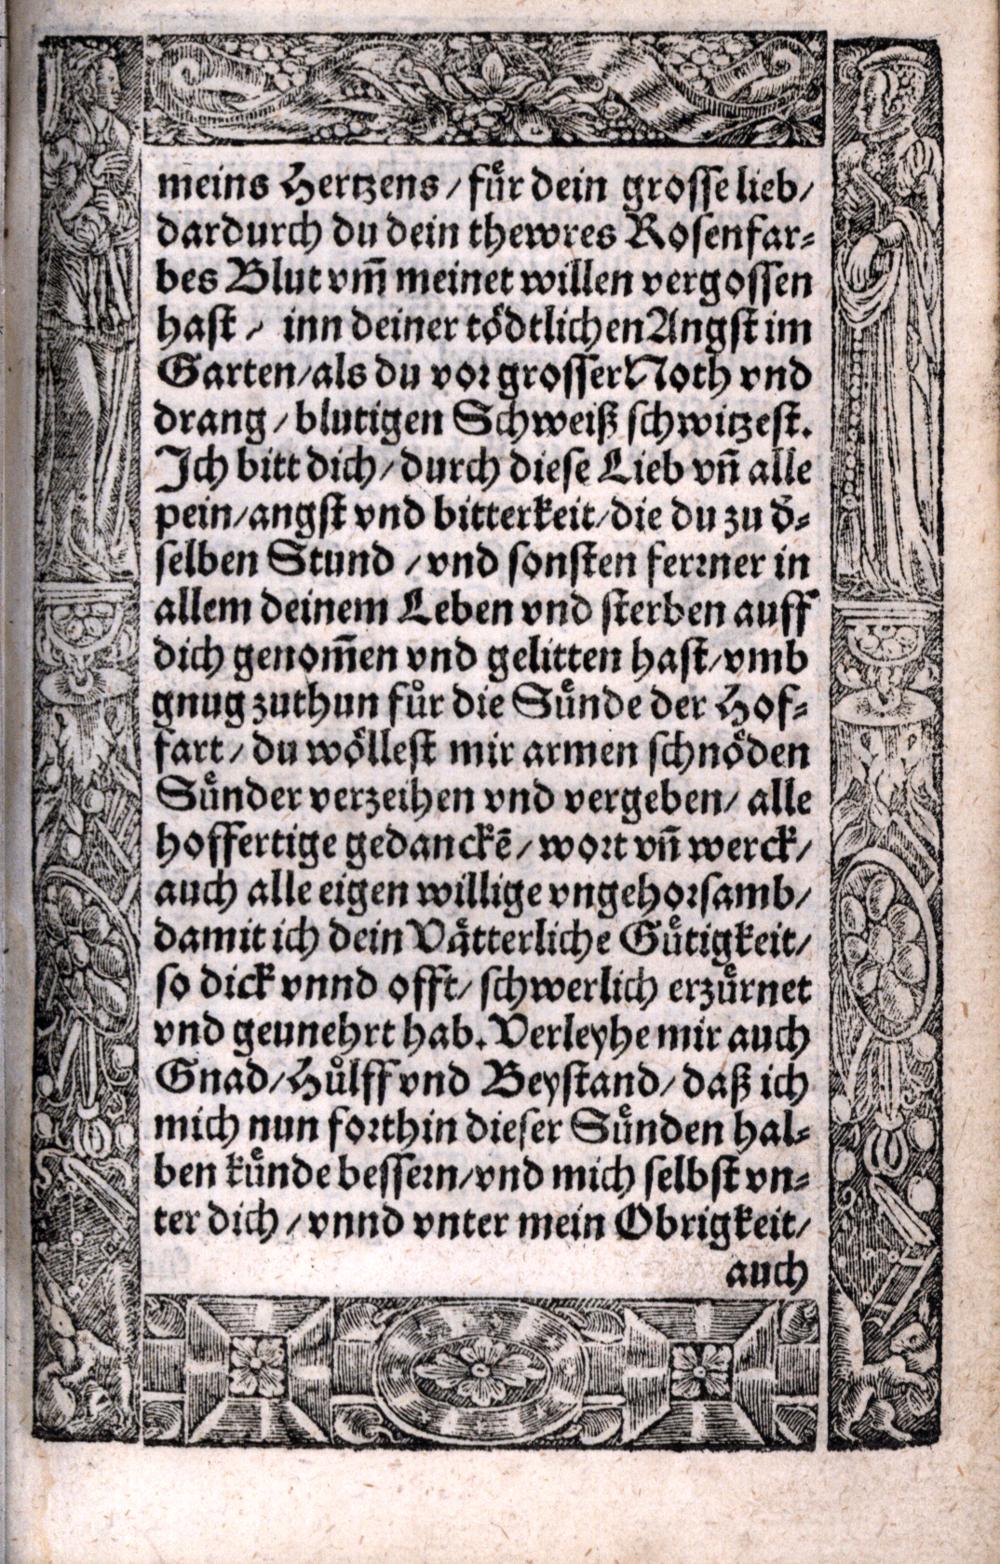 meins Hertzens / fuͤr dein grosse lieb /
dardurch du dein thewres Rosenfar⸗
bes Blut vm̃ meinet willen vergossen
hast / inn deiner toͤdtlichen Angst im
Garten / als du vor grosser Noth vnd
drang / blutigen Schweiß schwitzest.
Ich bitt dich / durch diese Lieb vñ alle
pein / angst vnd bitterkeit / die du zu d̕⸗
selben Stund / vnd sonsten ferrner in
allem deinem Leben vnd sterben auff
dich genom̃en vnd gelitten hast / vmb
gnug zuthun fuͤr die Suͤnde der Hof⸗
fart / du woͤllest mir armen schnoͤden
Suͤnder verzeihen vnd vergeben / alle
hoffertige gedanckẽ / wort vñ werck /
auch alle eigen willige vngehorsamb /
damit ich dein Vaͤtterliche Guͤtigkeit /
so dick vnnd offt / schwerlich erzuͤrnet
vnd geunehrt hab. Verleyhe mir auch
Gnad / Huͤlff vnd Beystand / daß ich
mich nun forthin dieser Suͤnden hal⸗
ben kuͤnde bessern / vnd mich selbst vn⸗
ter dich / vnnd vnter mein Obrigkeit /
auch